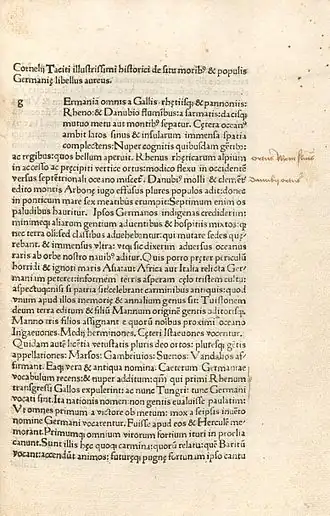 Cornelij Taciti illustrissimi historici de situ moribꝯ & populis
Germanię libellus aureus.
g Ermania omnis a Gallis rhętiisqꝫ & pannoniis
Rheno: & Danubio fluminibus: a sarmatis: dacisqꝫ
mutuo metu aut montibꝯ sepatur. Cętera oceanꝯ
ambit latos sinus & insularum immensa spatia
complectens: Nuper cognitis quibusdam gentibꝯ:
ac regibus: quos bellum aperuit. Rhenus rhęticarum alpium
in accesso ac pręcipiti vertice ortus: modico flexu in occidentē
versus septētrionali oceano miscet. Danubiꝯ molli & clemēter
edito montis Arbonę iugo effusus plures populos adit: donec
in ponticum mare sex meatibus erumpat: Septimum enim os
paludibus hauritur. Ipsos Germanos indigenas crediderim
minimeqꝫ aliarum gentium aduentibus & hospitiis mixtos: qꝫ
nec terra oli: sed classibus aduehebantur: qui mutare sedes quę
rebant. & immensus vltra: vtqꝫ sic dixerim aduersus oceanus
raris ab orbe nostro nauibꝯ aditur. Quis porro pręter periculū
horridi & ignoti maris Asia: aut Africa aut Italia relicta Ger
maniam peteret: informem terris asperam cęlo tristem cultu:
aspectuqꝫ nisi si patria sit: celebrant carminibus antiquis: quod
vnum apud illos memorię & annalium genus sit. Tuistonem
deum terra editum & filiū Mannum originē gentis aditorisqꝫ.
Manno tris filios assignant e quorū noībus proximi oceano
Ingaeuones. Medij herminones. Cęteri Istaeuones vocentur.
Quidam autē licētia vetustatis pluris deo ortos: plurisqꝫ gētis
appellationes: Marsos: Gambriuios: Sueuos: Vandalios af
firmant. Eaqꝫ vera & antiqua nomina. Caeterum Germaniae
vocabulum recens: & nuper additum: qm̄ qui primi Rhenum
transgressi Gallos expulerint: ac nunc Tungri: tunc Germani
vocati sint. Ita nationis nomen: non gentis eualuisse paulatim:
Vt omnes primum a victore ob metum: mox a seipsis inuēto
nomine Germani vocarentur. Fuisse apud eos & Herculē me
morant. Primumqꝫ omnium virorum fortium ituri in proelia
canunt. Sunt illis hęc quoqꝫ carmina: quorū relatu: quē Baritū
vocant: accendūt animos: futuręqꝫ pugnę fortunam ipso cantu
ortus Rheni fluuij
Danubij ortus